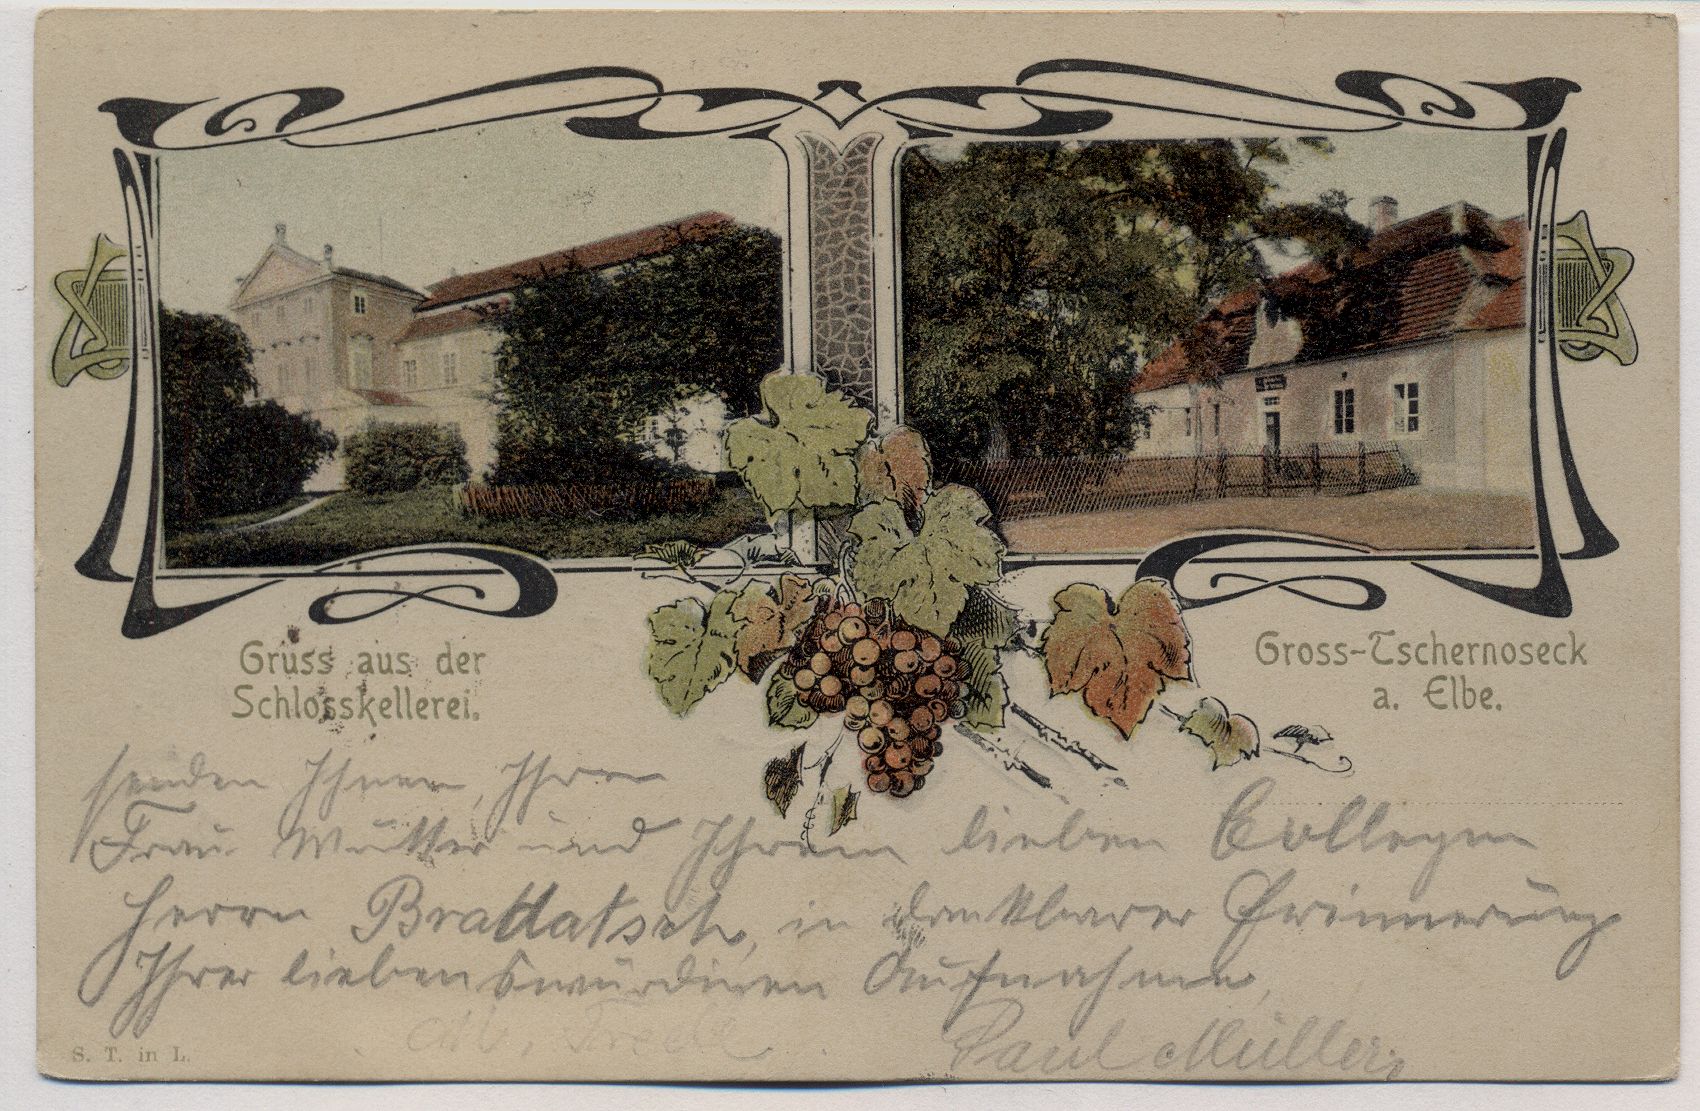 Gruss aus der
Schlosskellerei.
Gross-Tschernoseck
a. Elbe.
senden Ihnen, Ihrer
Frau Mutter und Ihrem lieben Collegen
Herrn Brattatsch, in dankbarer Erinnerung
Ihrer liebenswürdigen Aufnahme,
Paul Müller,
S. T. in L.